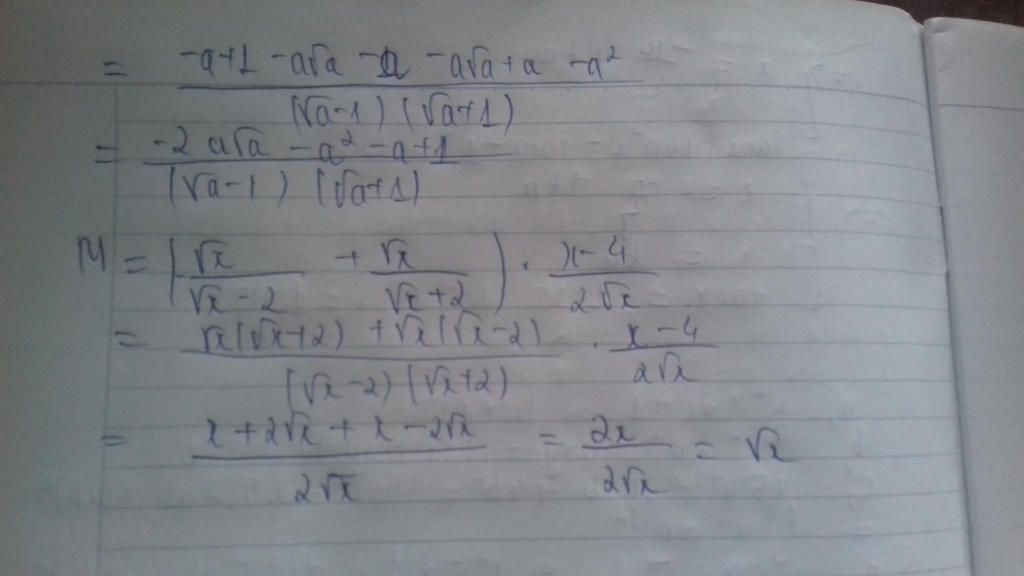 = (-a+1 -a√a -a -a√a+a -a²) / ((√a-1) (√a+1))
= (-2 a√a -a² -a+1) / ((√a-1) (√a+1))
M = (√x / (√x-2) + √x / (√x+2)) . (x-4) / (2√x)
= (√x(√x+2) + √x(√x-2)) / ((√x-2)(√x+2)) . (x-4) / (2√x)
= (x+2√x+x-2√x) / (2√x) = 2x / (2√x) = √x